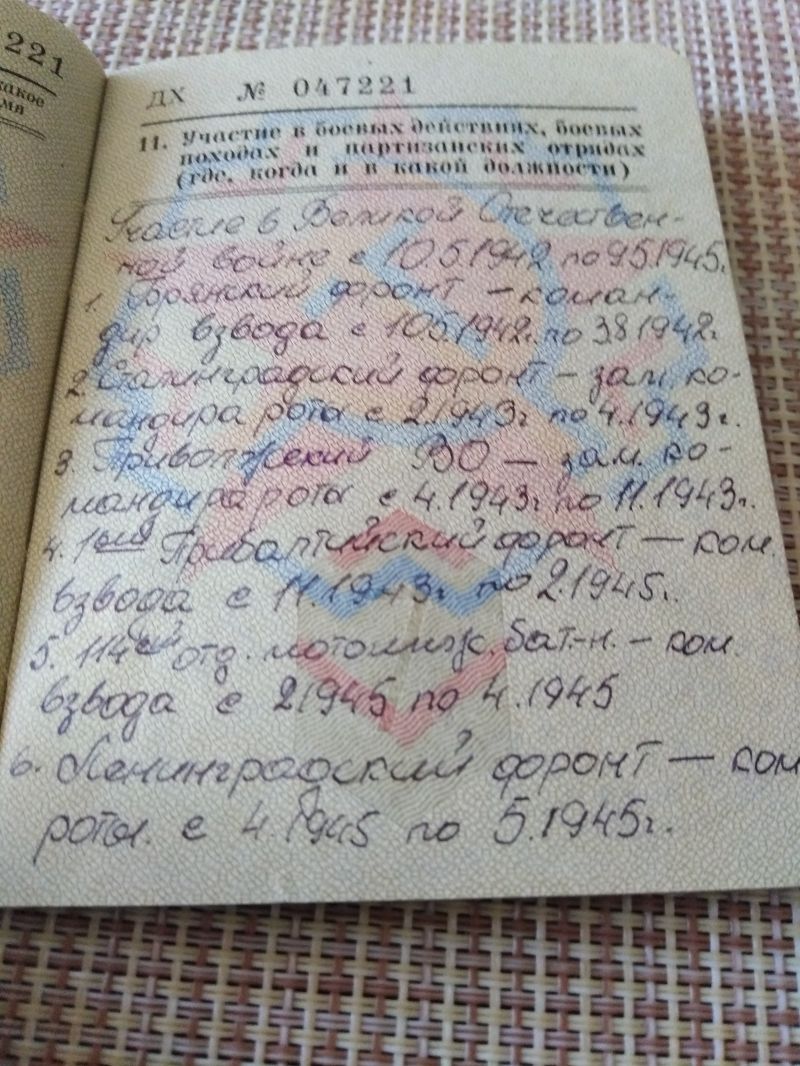 221
какое
мя
ДХ № 047221
11. Участие в боевых действиях, боевых
походах и партизанских отрядах
(где, когда и в какой должности)
Участие в Великой Отечествен-
ной войне с 10.5.1942 по 9.5.1945г.
1. Брянский фронт – коман-
дир взвода с 10.5.1942г. по 3.8.1942г.
2. Сталинградский фронт – зам. ко-
мандира роты с 2.1943г по 4.1943г.
3. Приволжский ВО – зам. ко-
мандира роты с 4.1943г. по 11.1943г.
4. 1ый Прибалтийский фронт – ком.
взвода с 11.1943г. по 2.1945г.
5. 114ый отд. мотоинж. бат-н. – ком.
взвода с 2.1945 по 4.1945
6. Ленинградский фронт – ком
роты. с 4.1945 по 5.1945г.